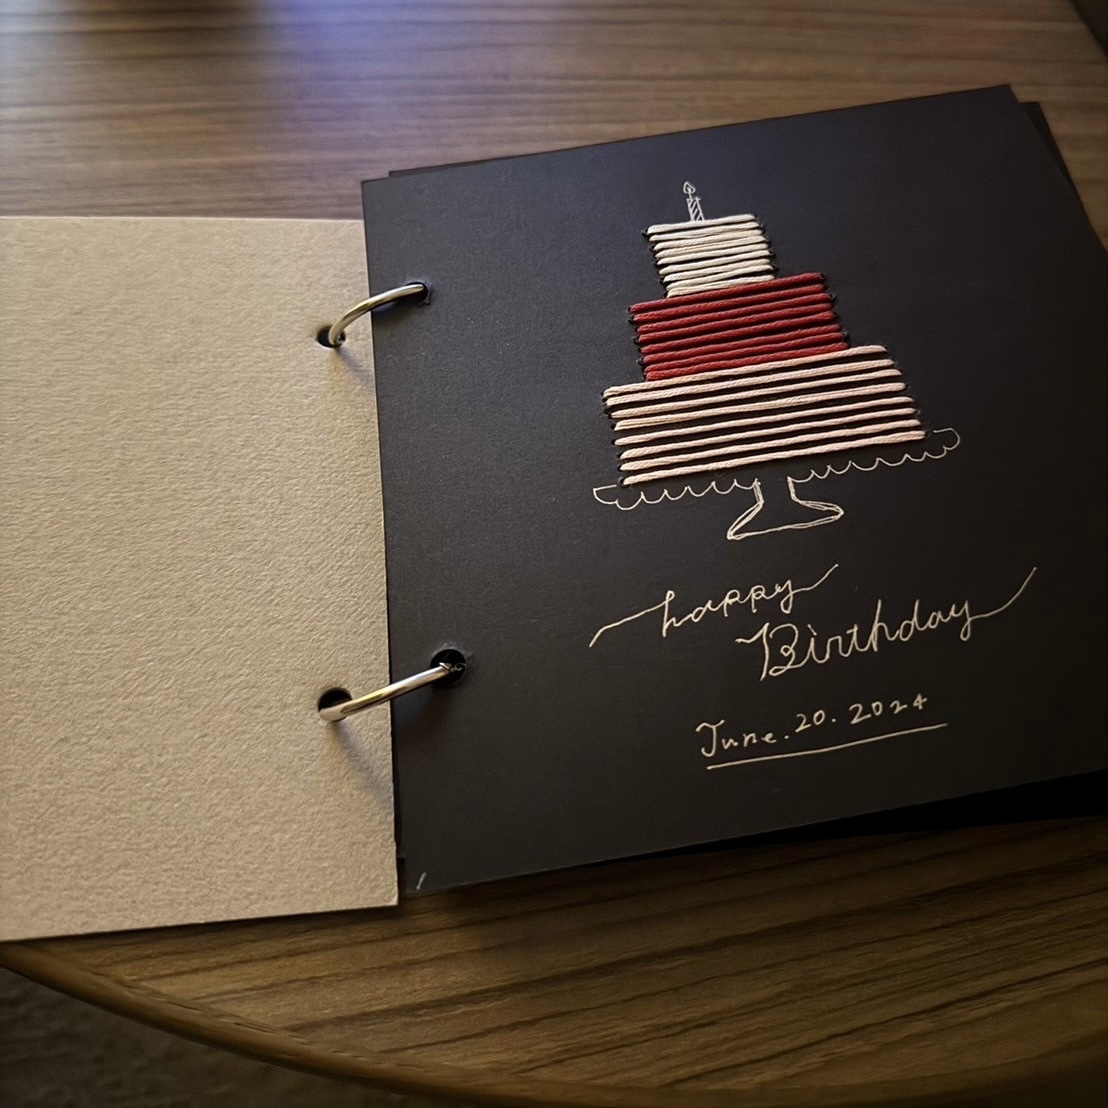 happy
Birthday
June. 20. 2024